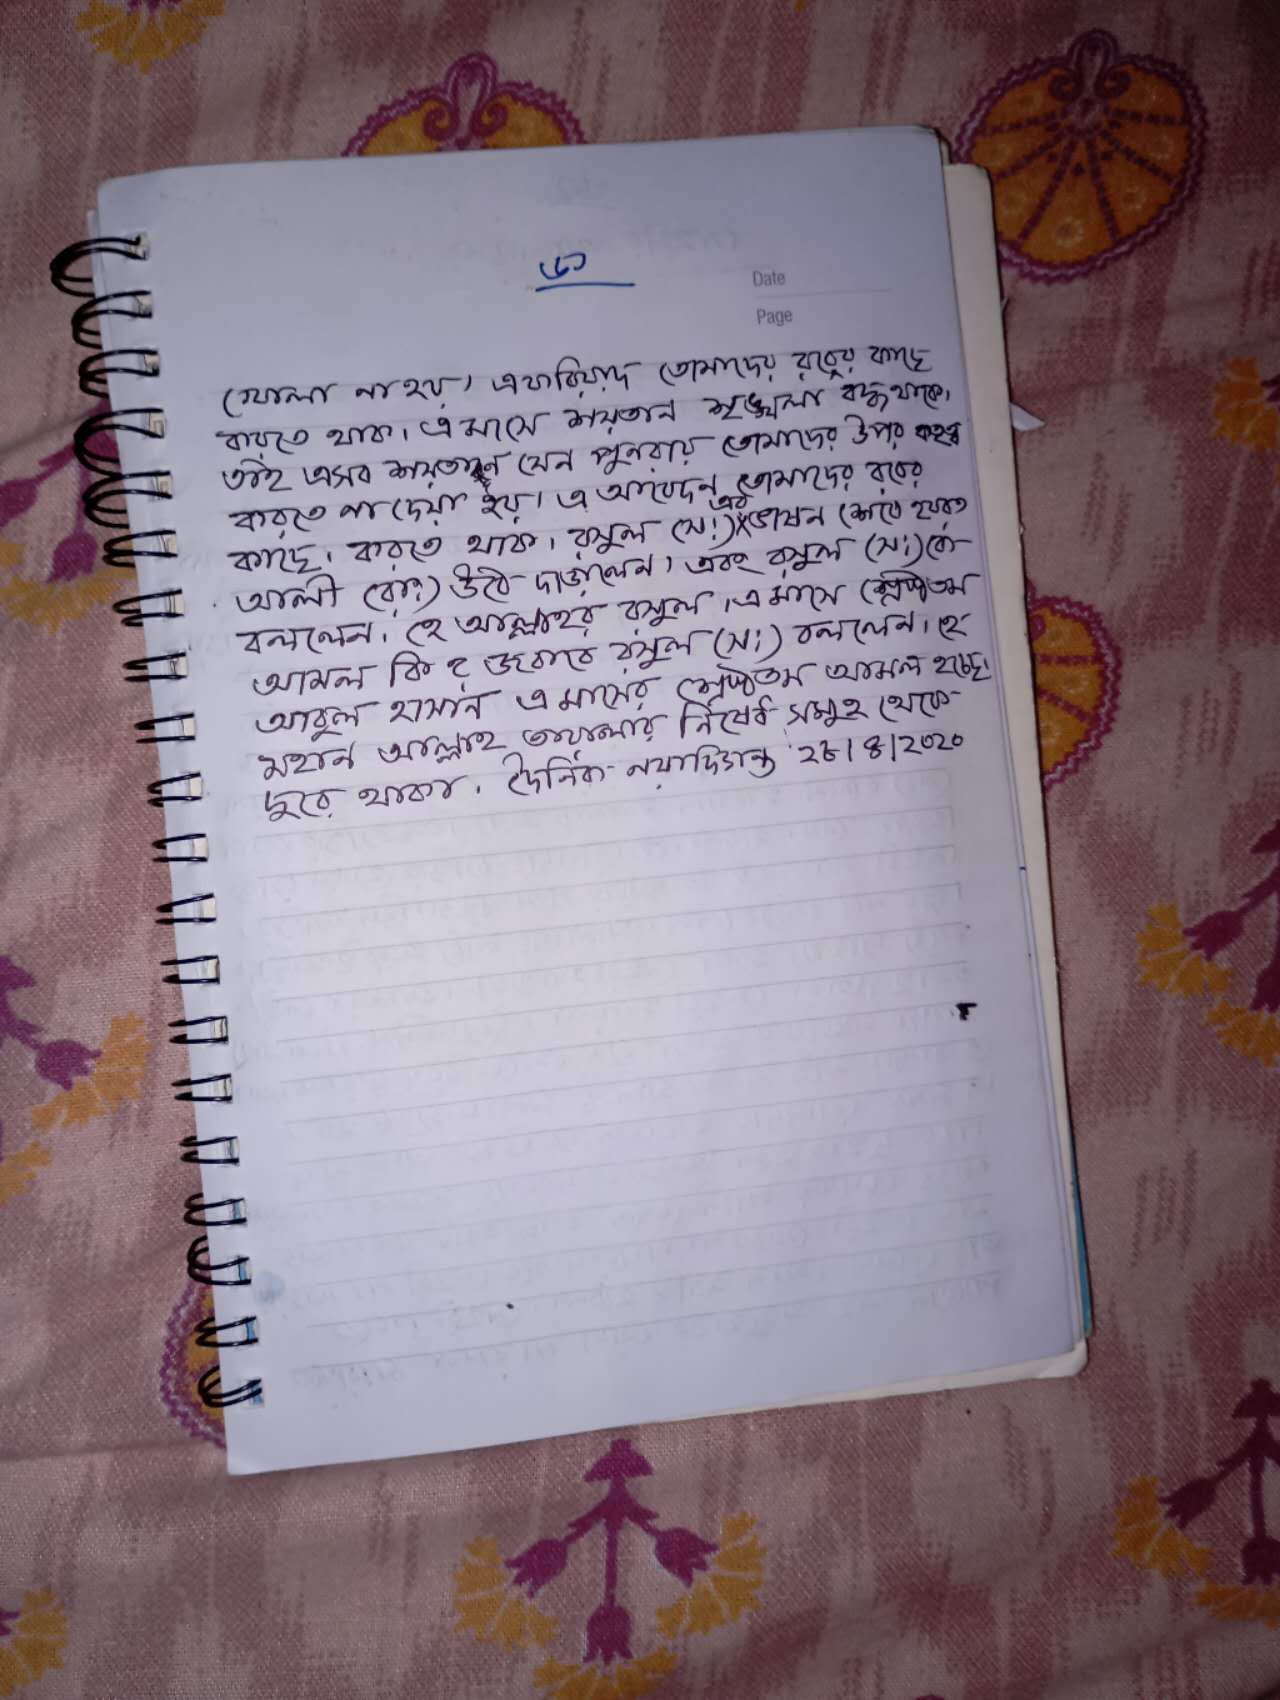 ৬১
Date
Page
খোলা না হয়। এ ফরিয়াদ তোমাদের রবের কাছে
করতে থাক। এ মাসে শয়তান শৃঙ্খলা বদ্ধ থাকে।
তাই এসব শয়তান যেন পুনরায় তোমাদের উপর
করতে না দেয়া হয়। এ আবেদন তোমাদের রবের
কাছে। করতে থাক। রসুল (স:) এর ভাষন শেষে হযরত
আলী (রা:) উঠে দাড়ালেন। এবং রসুল (স:) কে
বললেন। হে আল্লাহর রসুল। এ মাসে শ্রেষ্ঠতম
আমল কি? জবাবে রসুল (স:) বললেন। হে
আবুল হাসান এ মাসের শ্রেষ্ঠতম আমল হচ্ছে।
মহান আল্লাহ তায়ালার নিষেধ সমুহ থেকে
দুরে থাকা। দৈনিক নয়াদিগন্ত ২৮।৪।২০২০